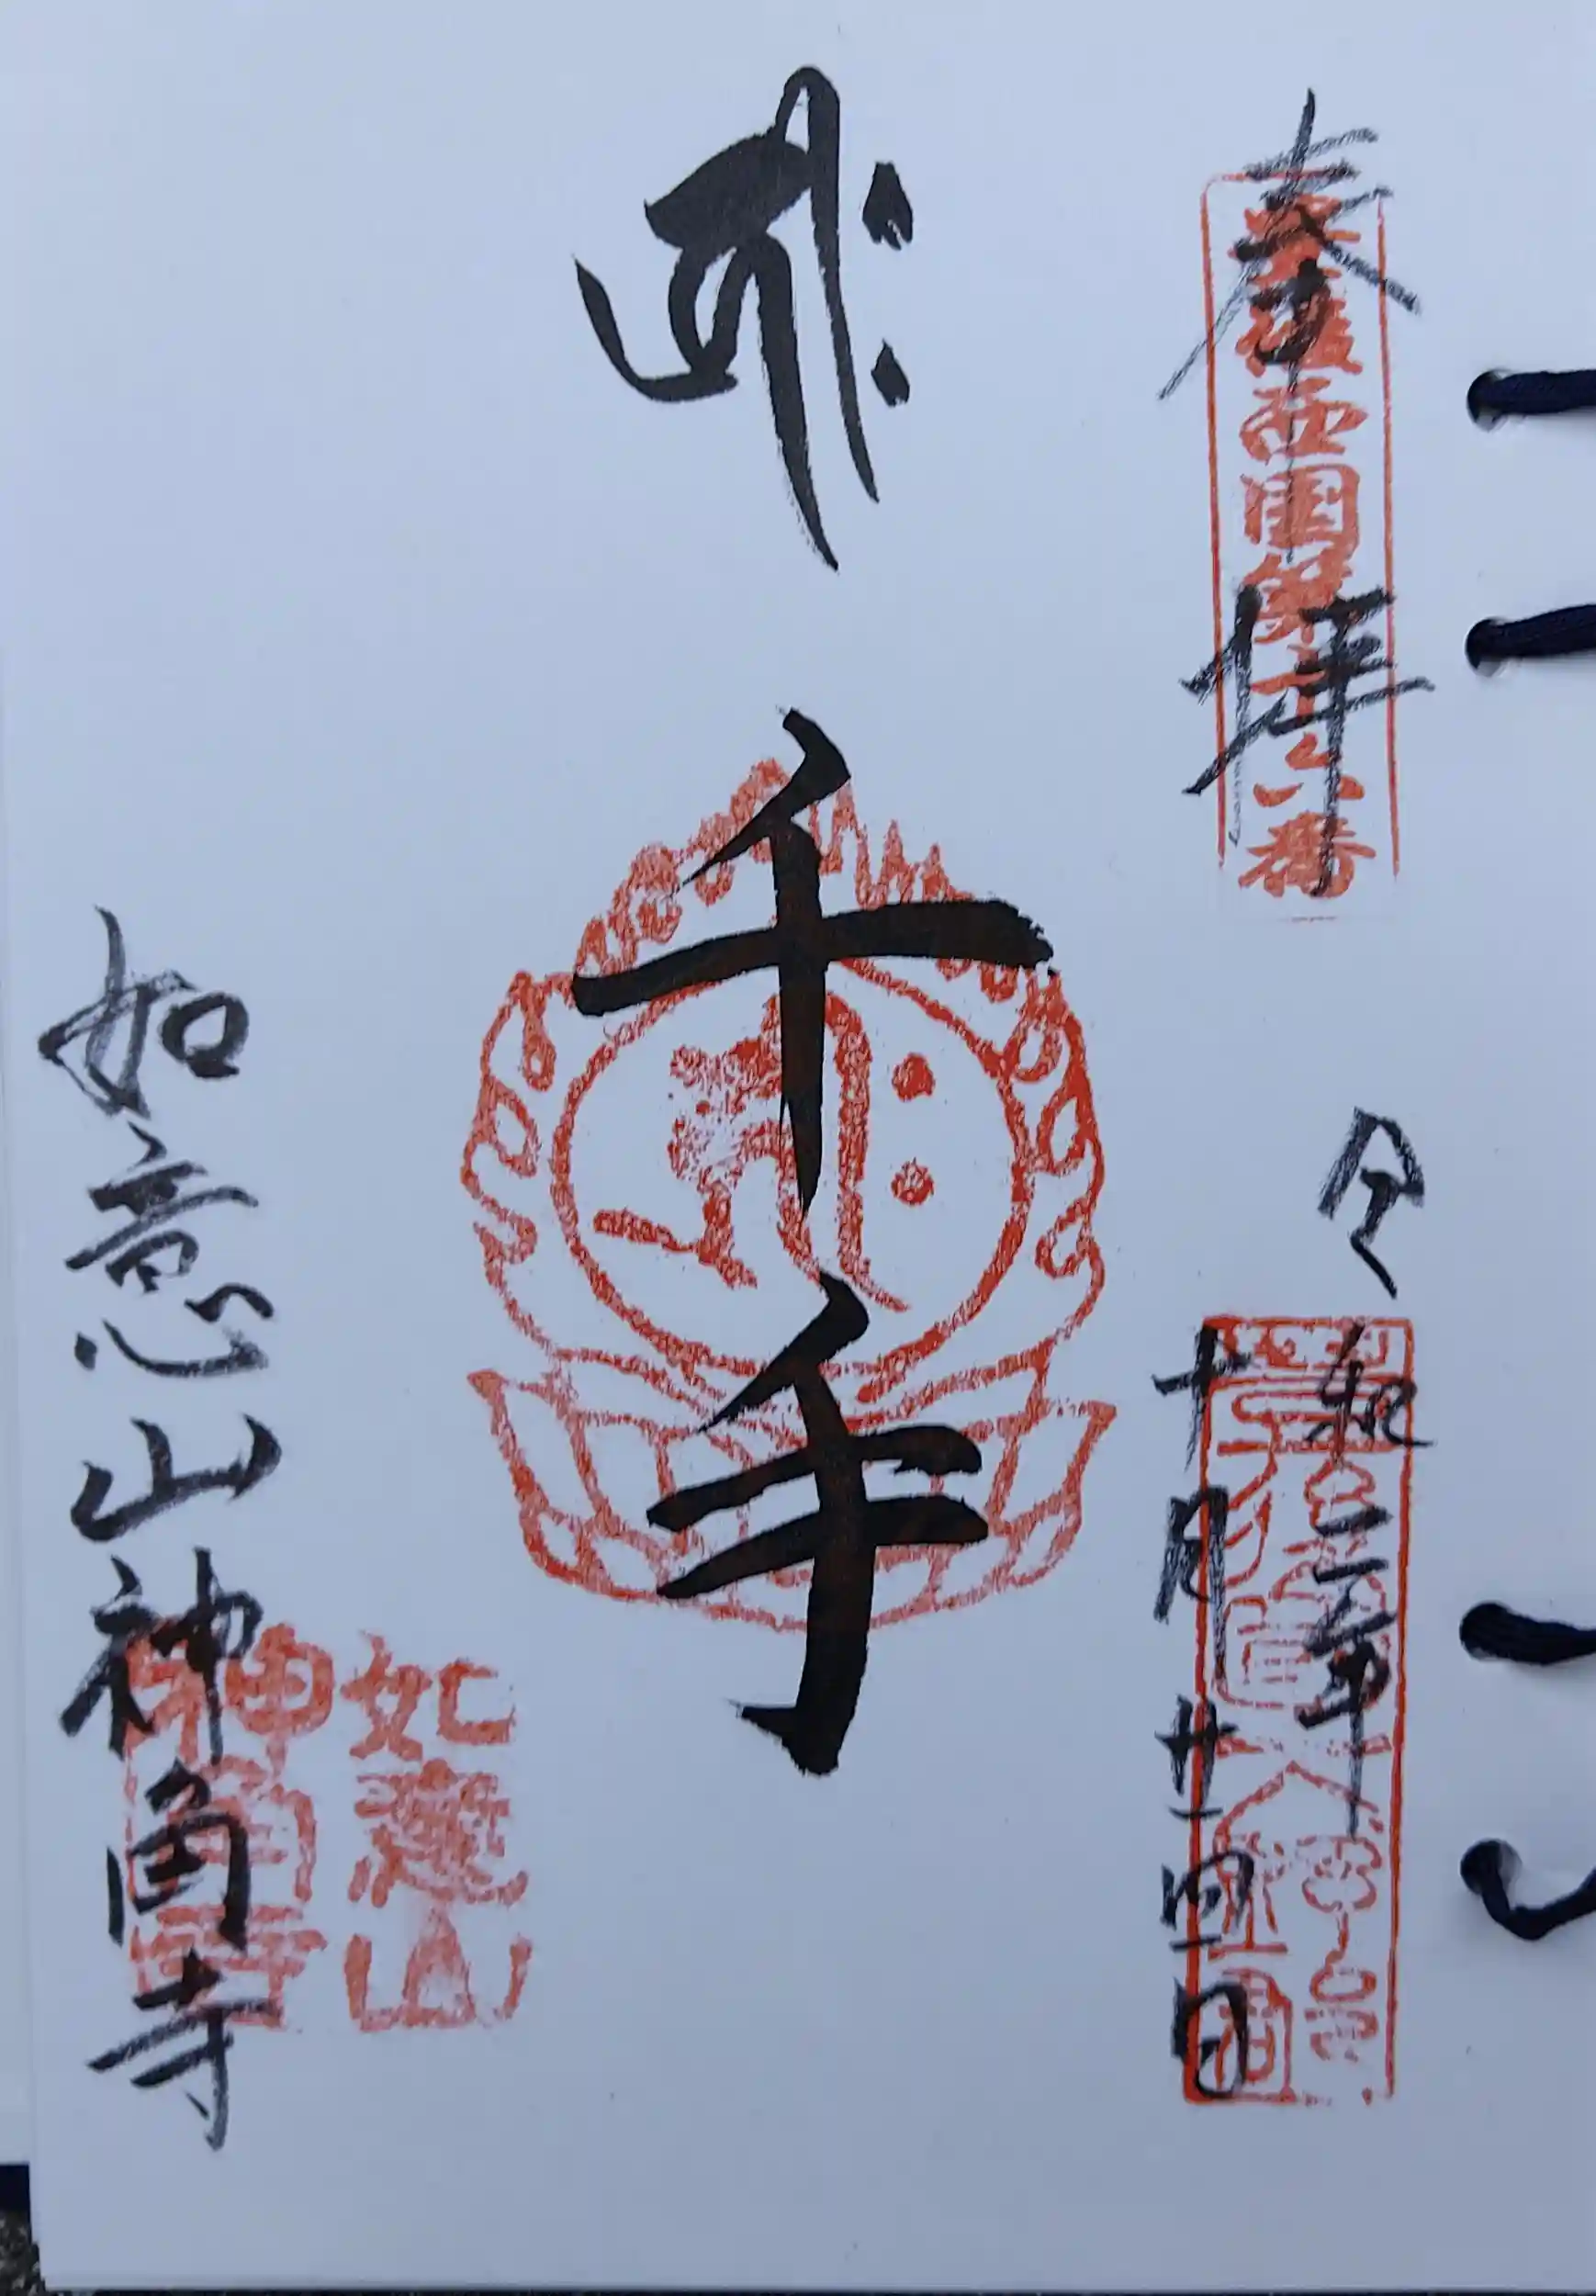 奉拝
豊後西国第十六番
令和三年
十月廿四日
ह्रीः
千手
如意山
神角寺
如意山神角寺